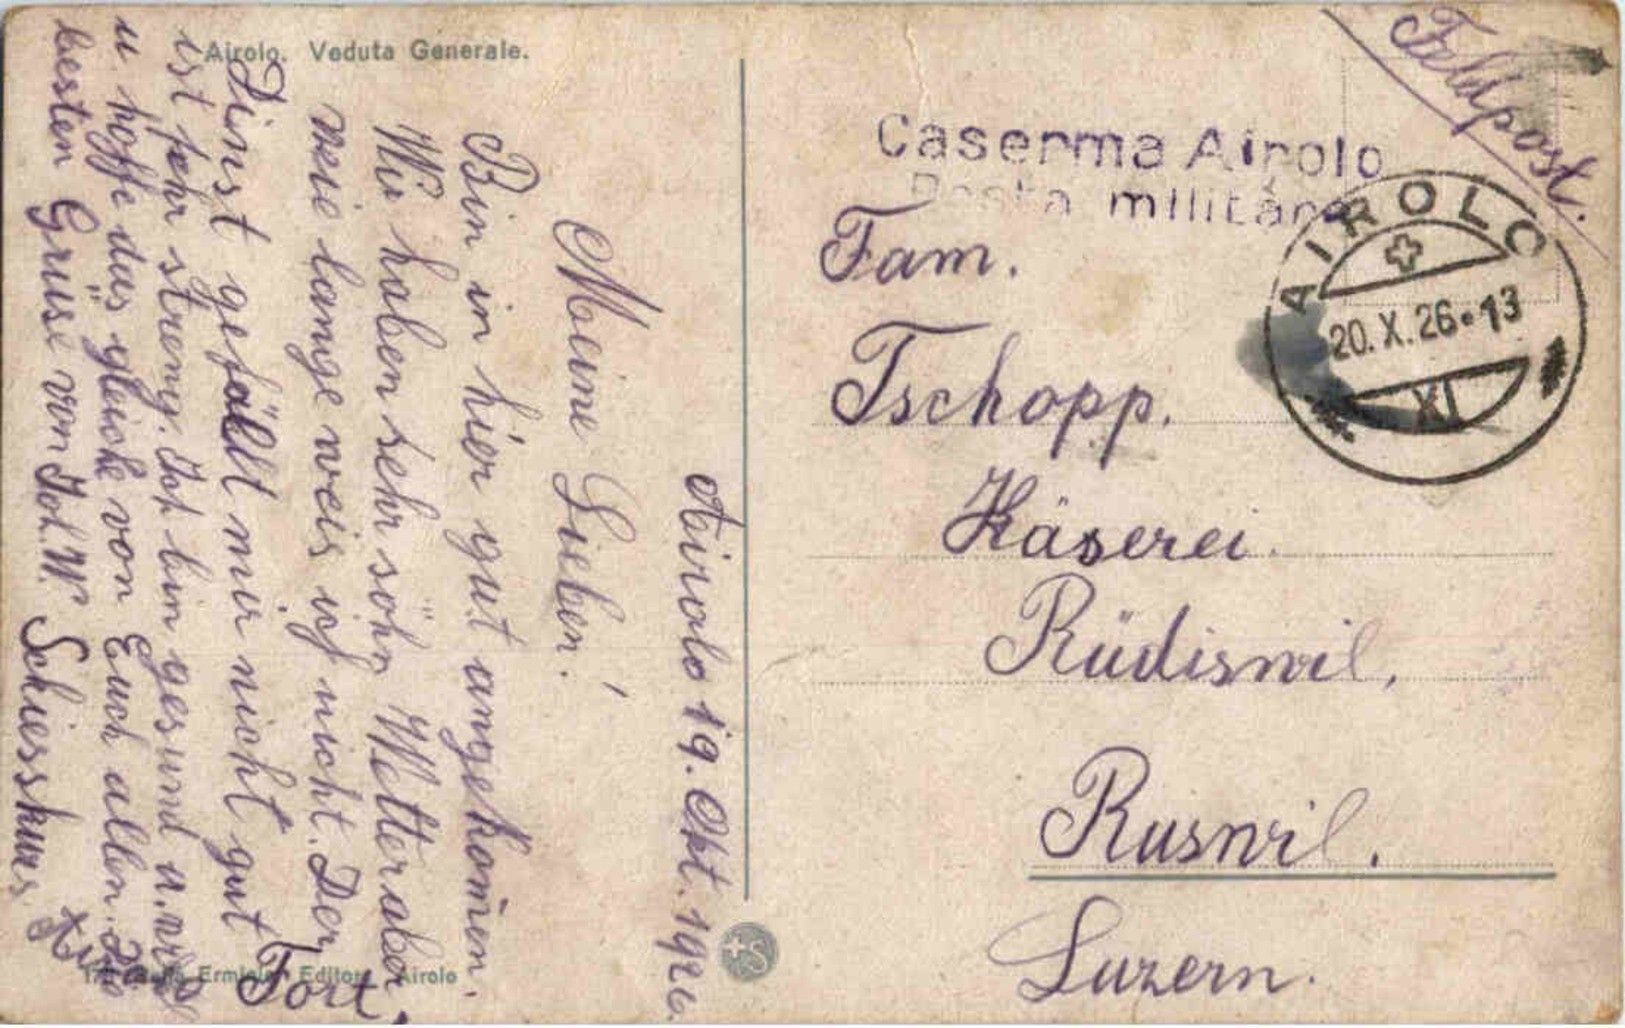 Airolo. Veduta Generale.
Airolo 19. Okt. 1926.
Meine Lieben!
Bin in hier gut angekom̄en.
Wir haben sehr schön Wetter aber
wie lange weis ich nicht. Der
Dinst gefällt mir nicht gut
ist sehr streng. Ich bin gesund u.
u hoffe das gleiche von Euch allen.
besten Grüse von Joh. W. Schiesskurs
Fort.
Ermiola, Editore Airolo
Feldpost.
Caserma Airolo
Posta militare
AIROLO
20. X. 26 • 13
XI
Fam.
Tschopp.
Käserei.
Rüdiswil.
Ruswil.
Luzern.